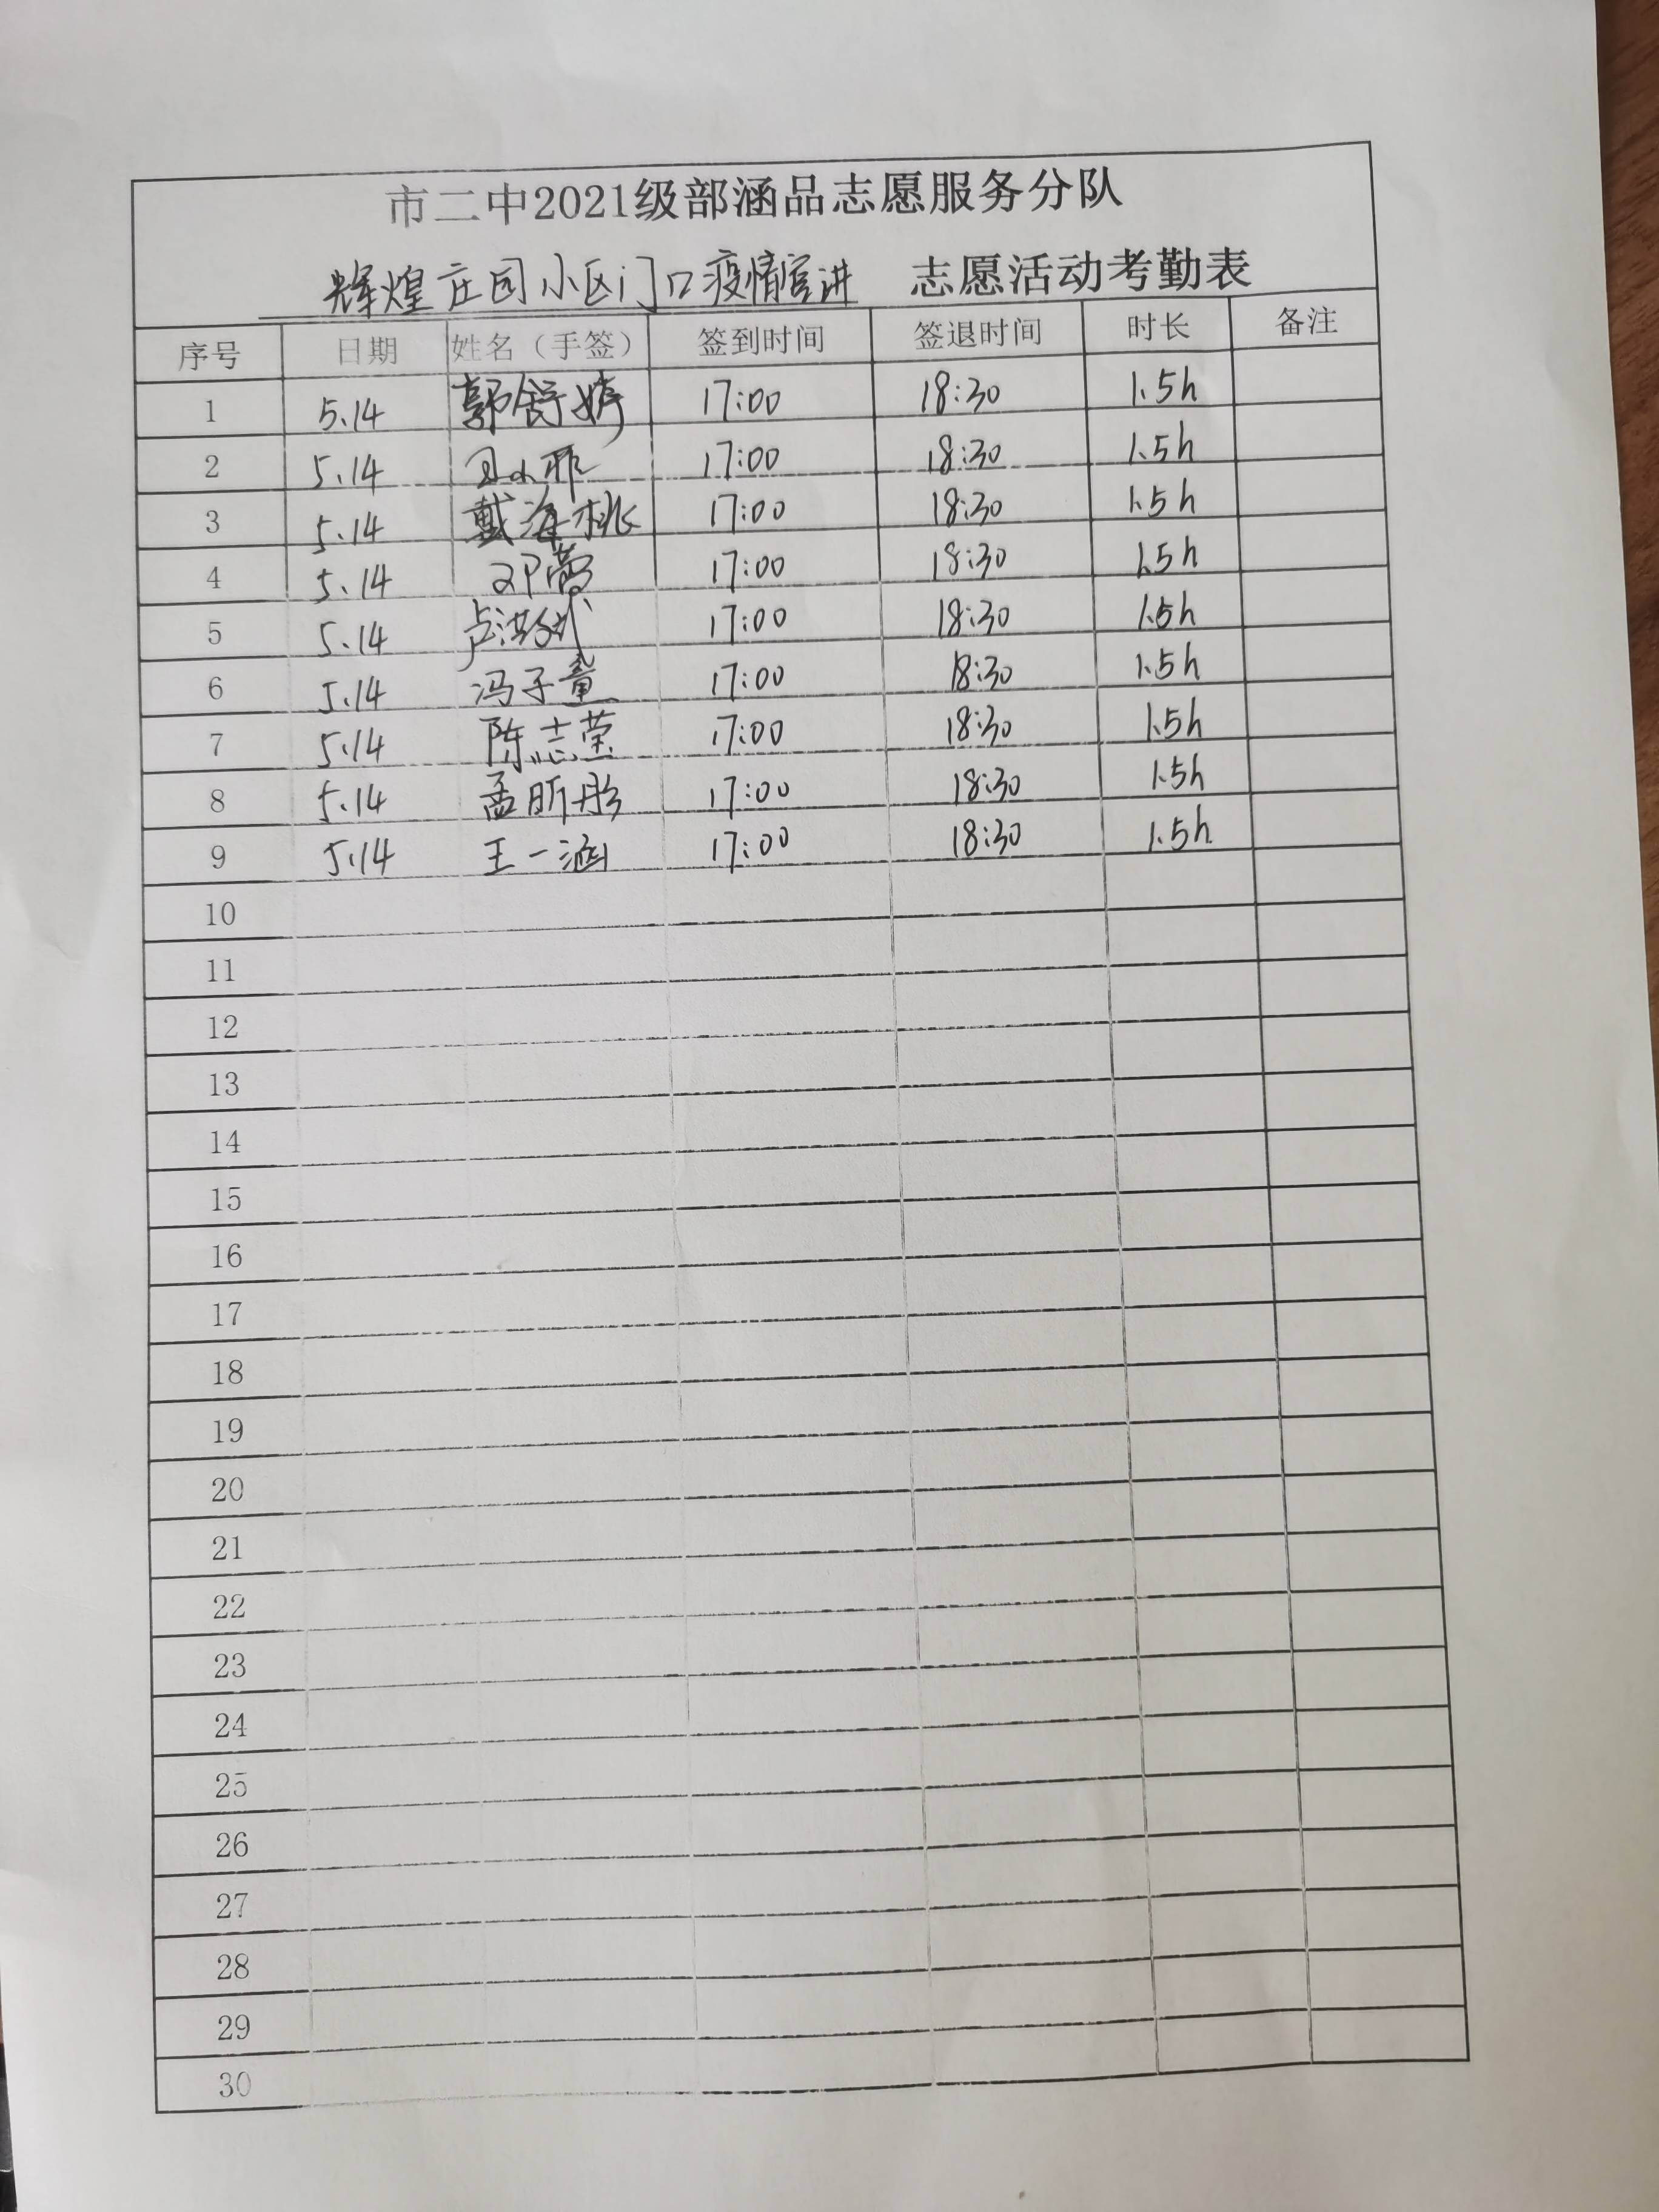 市二中2021级部涵品志愿服务分队
辉煌庄园小区门口疫情宣讲 志愿活动考勤表
序号 日期 姓名（手签） 签到时间 签退时间 时长 备注
1 5.14 郭舒婷 17:00 18:30 1.5h
2 5.14 17:00 18:30 1.5h
3 5.14 戴海桃 17:00 18:30 1.5h
4 5.14 邓蕾 17:00 18:30 1.5h
5 5.14 17:00 18:30 1.5h
6 5.14 冯子童 17:00 18:30 1.5h
7 5.14 陈志莹 17:00 18:30 1.5h
8 5.14 孟昕彤 17:00 18:30 1.5h
9 5.14 王一涵 17:00 18:30 1.5h
10
11
12
13
14
15
16
17
18
19
20
21
22
23
24
25
26
27
28
29
30